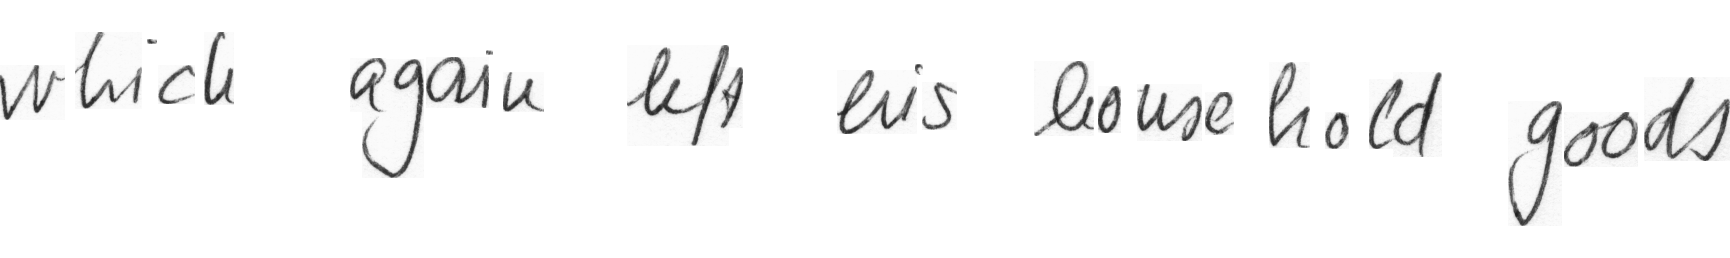 which again left his household goods